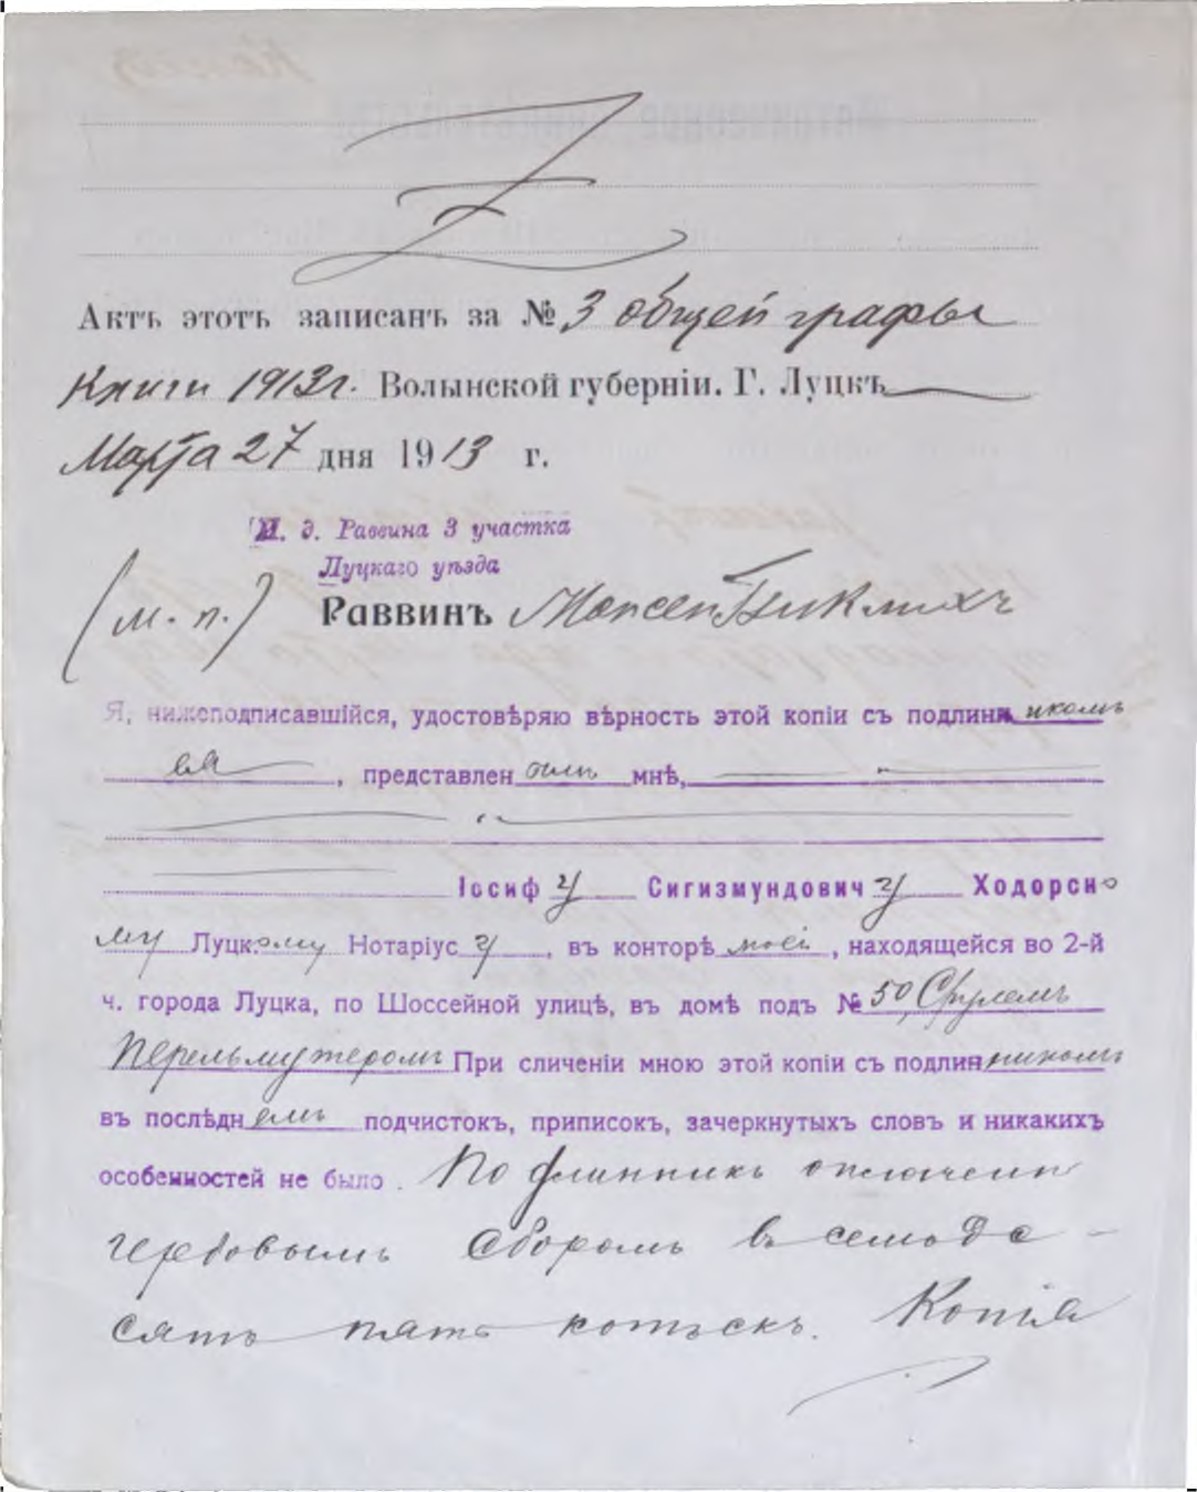 Актъ этотъ записанъ за № 3 общей графы
Книги 1913 г. Волынской губерніи. Г. Луцкъ
Марта 27 дня 1913 г.
И. д. Раввина 3 участка
Луцкаго уѣзда
(м. п.) Раввинъ Мойсей
Я, нижеподписавшійся, удостовѣряю вѣрность этой копіи съ подлинникомъ
ея, представленнымъ мнѣ,
Іосифу Сигизмундовичу Ходорско
му Луцкому Нотаріусу, въ конторѣ моей, находящейся во 2-й
ч. города Луцка, по Шоссейной улицѣ, въ домѣ подъ № 50, Срулемъ
Перельмутеромъ При сличеніи мною этой копіи съ подлинникомъ
въ послѣднемъ подчистокъ, приписокъ, зачеркнутыхъ словъ и никакихъ
особенностей не было. Подлинникъ оплаченъ
гербовымъ сборомъ въ семьде-
сятъ пять копѣекъ. Копія